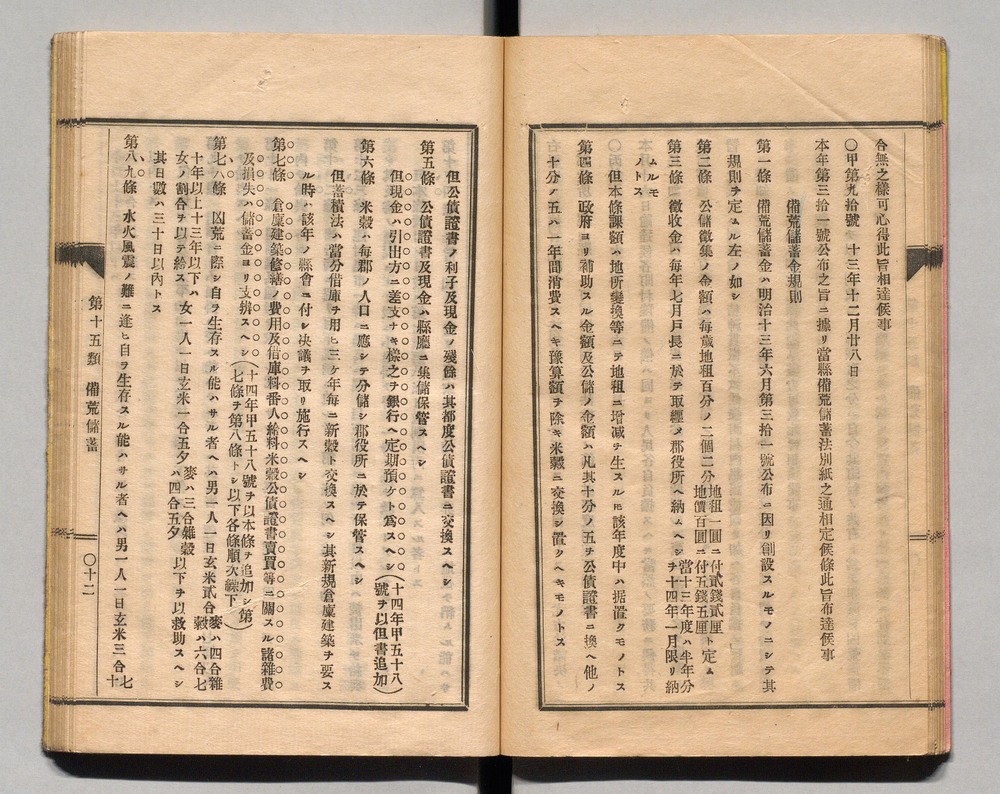 合無之樣可心得此旨相達候事
〇甲第九拾號　十三年十二月廿八日
本年第三拾一號公布之旨ニ據リ當縣備荒儲蓄法別紙之通相定候條此旨布達候事
備荒儲蓄金規則
第一條　備荒儲蓄金ハ明治十三年六月第三拾一號公布ニ因リ創設スルモノニシテ其
規則ヲ定ムル左ノ如シ
第二條　公儲徵集ノ金額ハ每歲地租百分ノ二個二分地租一圓ニ付貳錢貳厘地價百圓ニ付五錢五厘ト定ム
第三條　徵收金ハ每年七月戶長ニ於テ取纒メ郡役所ヘ納ムヘシ當十三年度ハ半年分ヲ十四年一月限リ納
ムルモノトス
〇丙但本條課額ハ地所變換等ニテ地租ニ增减ヲ生スルモ該年度中ハ据置クモノトス
第四條　政府ヨリ補助スル金額及公儲ノ金額ハ凡其十分ノ五ヲ公債證書ニ換ヘ他ノ
十分ノ五ハ一年間消費スヘキ豫算額ヲ除キ米穀ニ交換シ置クヘキモノトス
但公債證書ノ利子及現金ノ殘餘ハ其都度公債證書ニ交換スヘシ
第五條　公債證書及現金ハ縣廳ニ集儲保管スヘシ
但現金ハ引出方ニ差支ナキ樣之ヲ銀行ヘ定期預ケト爲スヘシ（十四年甲五十八號ヲ以但書追加）
第六條　米穀ハ每郡ノ人口ニ應シテ分儲シ郡役所ニ於テ保管スヘシ
但蓄積法ハ當分借庫ヲ用ヒ三ケ年每ニ新穀ト交換スヘシ其新規倉廩建築ヲ要ス
ル時ハ該年ノ縣會ニ付シ決議ヲ取リ施行スヘシ
第七條　倉廩建築修繕ノ費用及借庫料番人給料米穀公債證書賣買等ニ關スル諸雜費
及損失ハ儲蓄金ヨリ支辨スヘシ（十四年甲五十八號ヲ以本條ヲ追加シ第七條ヲ第八條トシ以下各條順次繰下）
第七八條　凶荒ニ際シ自ラ生存スル能ハサル者ヘハ男一人一日玄米貳合麥ハ四合雜穀ハ六合七
十年以上十三年以下ハ女ノ割合ヲ以テ給ス女一人一日玄米一合五夕麥ハ三合雜穀ハ四合五夕以下ヲ以救助スヘシ
其日數ハ三十日以內トス
第八九條　水火風震ノ難ニ逢ヒ自ラ生存スル能ハサル者ヘハ男一人一日玄米三合七十
第十五類　備荒儲蓄
〇十二